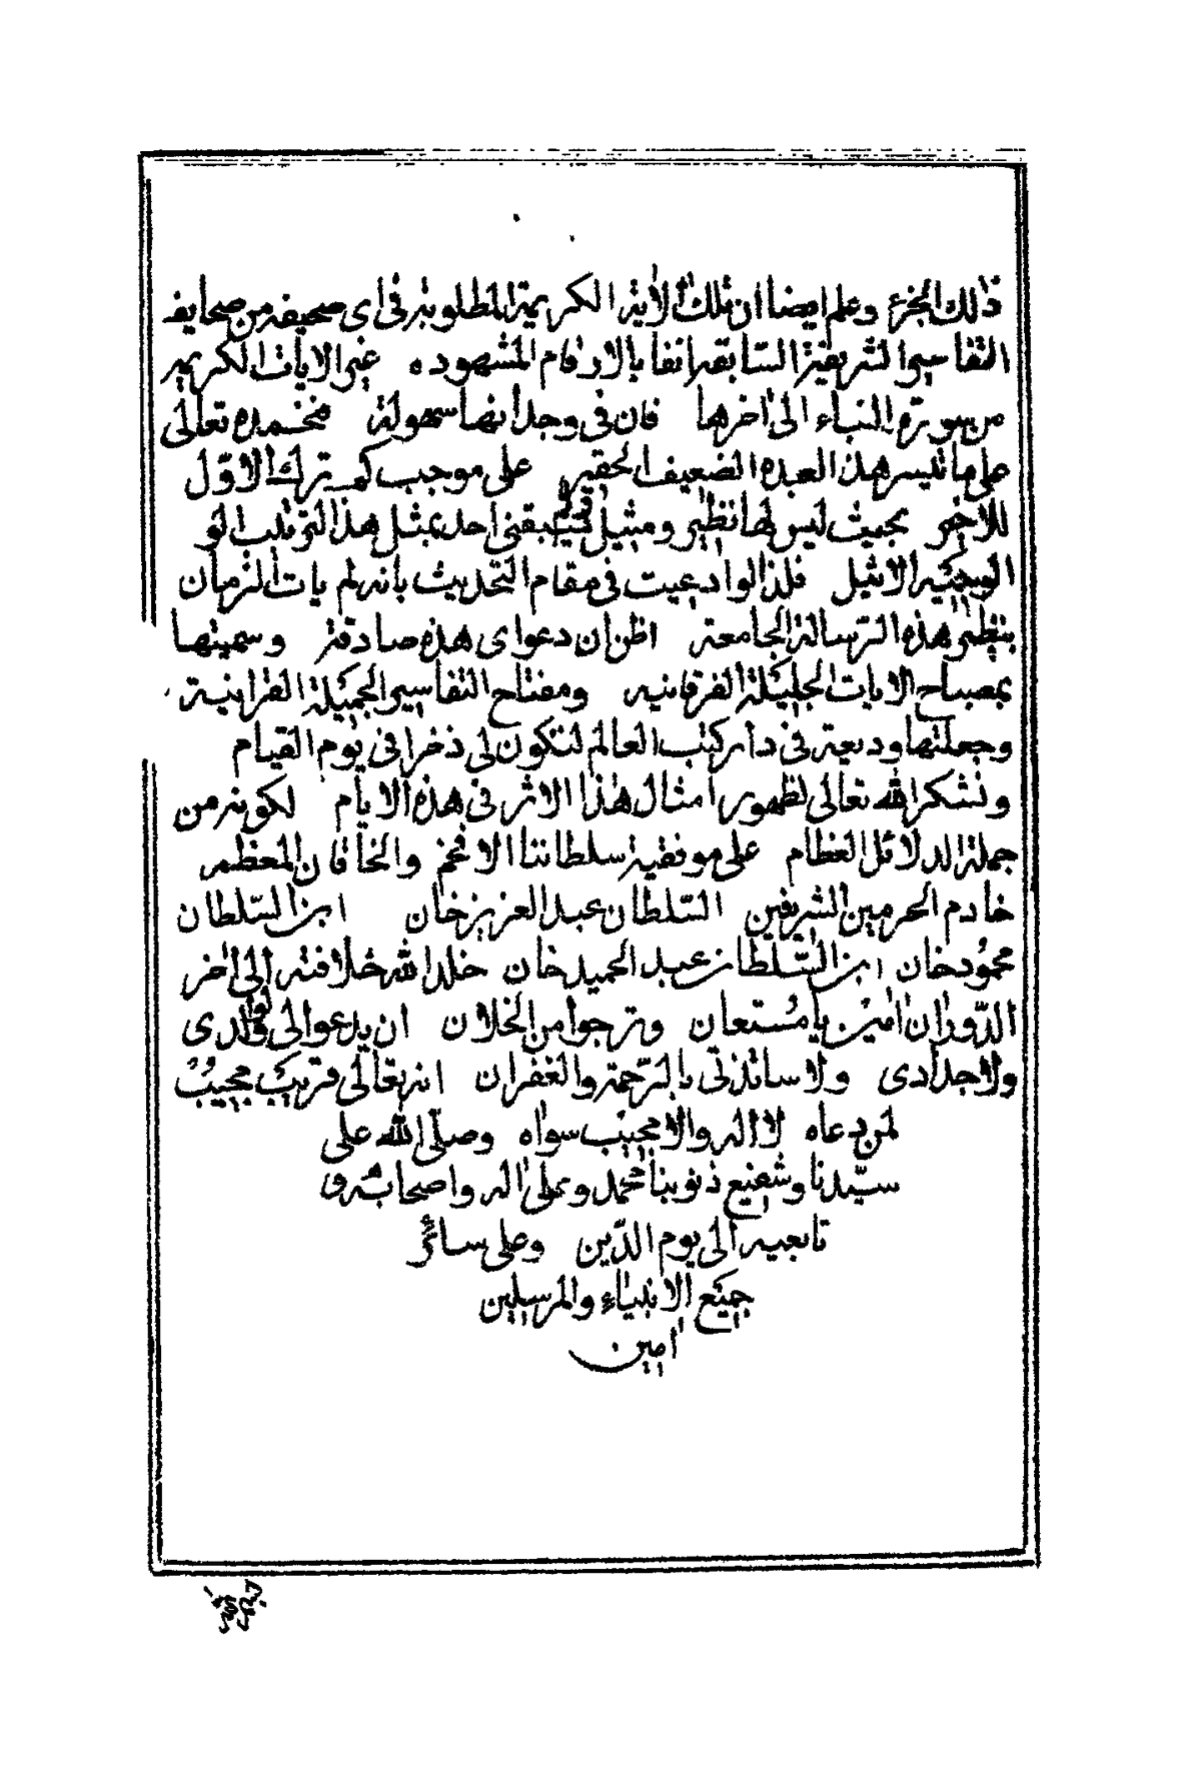 ذلك الجزء وعلم ايضا ان تلك الاية الكريمة المطلوبة فى اى صحيفه من صحايف
التفاسير الشريفة السابقه انفا بالارقام المشهوده غير الايات الكريمه
من سورة النباء الى اخرها فان فى وجدانها سهولة فنحمده تعالى
على ما تيسر هذا العبده الضعيف الحقير على موجب كم ترك الاول
للاخر بحيث ليس لها نظير ومثيل يسبقنى احد بمثل هذا الترتيب لو
الوجيه الاثيل فلذا لو ادعيت فى مقام التحديث بانه لم يات الزمان
بنظير هذه الرسالة الجامعة اظن ان دعواى هذه صادقة وسميتها
بمصباح الايات الجليلة الفرقانيه ومفتاح التفاسير الجميلة القرانية
وجعلتها وديعة فى دار كتب العالم لتكون لى ذخرا فى يوم القيام
ونشكر الله تعالى لظهور امثال هذا الاثر فى هذه الايام لكونه من
جملة الدلائل العظام على موفقية سلطاننا الافخم والخاقان المعظم
خادم الحرمين الشريفين السلطان عبد العزيز خان ابن السلطان
محمود خان ابن السلطان عبد الحميد خان خلد الله خلافته الى اخر
الدوران امين يا مستعان وترجوا من الخلان ان يدعوا لى ولوالدى
ولاجدادى ولاساتذتى بالرحمة والغفران انه تعالى قريب مجيب
لمن دعاه لا اله ولا مجيب سواه وصلى الله على
سيدنا وشفيع ذنوبنا محمد وعلى اله واصحابه و
تابعيه الى يوم الدين وعلى سائر
جميع الانبياء والمرسلين
امين